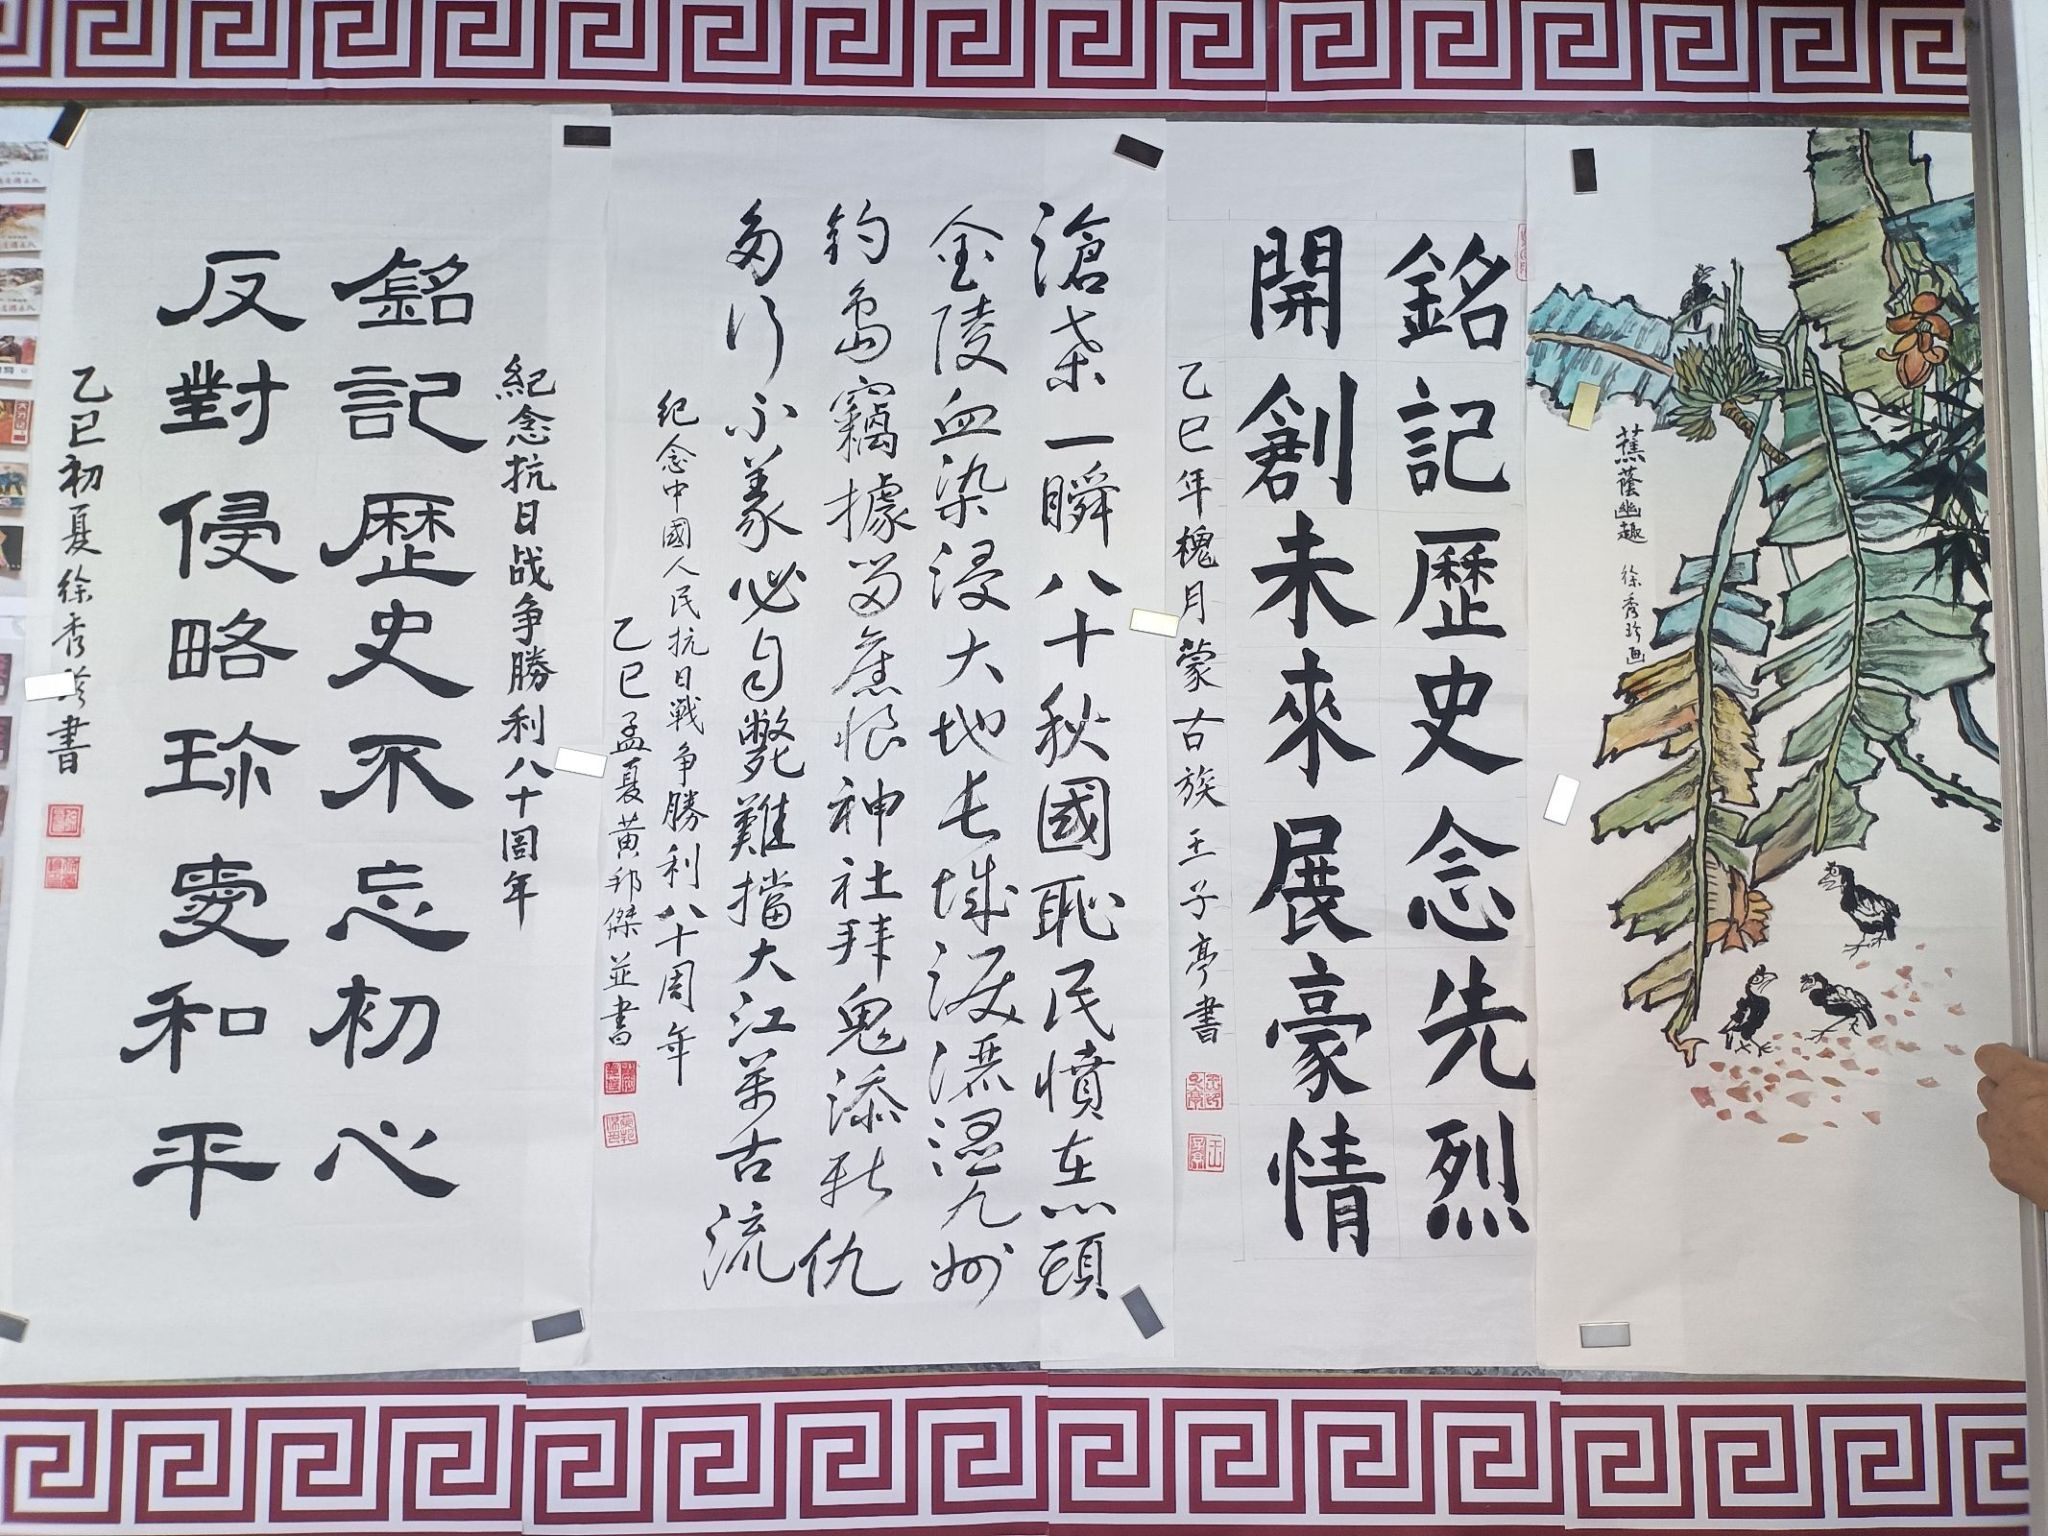 蕉蔭幽趣 徐秀珍画
銘記歷史念先烈
開創未來展豪情
乙巳年槐月蒙古族王子亭書
滄桑一瞬八十秋國恥民憤在心頭
金陵血染浸大地長城淚灑濕九州
釣島竊據留舊恨神社拜鬼添新仇
多行不義必自斃難擋大江萬古流
纪念中國人民抗日戰争勝利八十周年
乙巳孟夏黄邦傑並書
紀念抗日战争勝利八十周年
銘記歷史不忘初心
反對侵略珍愛和平
乙巳初夏徐秀珍書